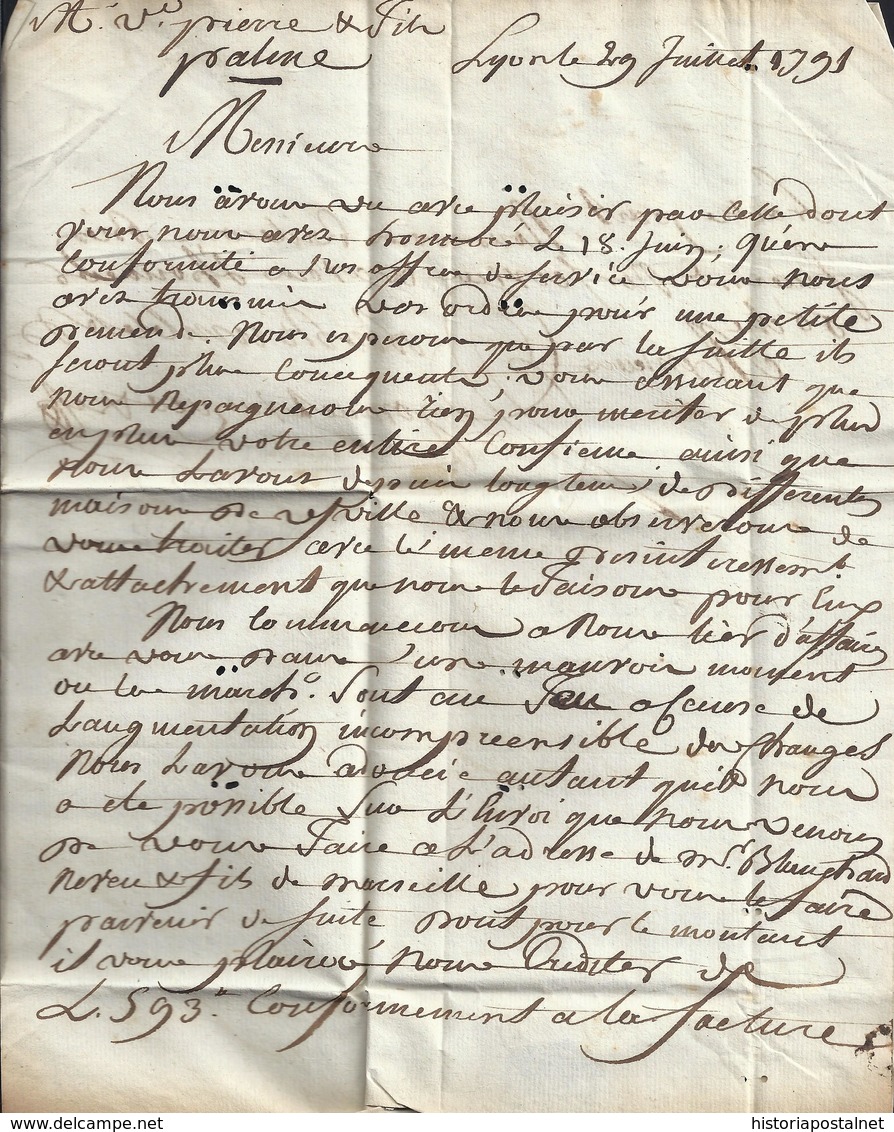 Mrs. Ve. pierre & Fils
palme
Lyon le 29 Juillet 1791
Messieurs
Nous avons vu avec plaisir par Celle dont
vous nous avez honnoré Le 18. Juin, qu'en
Conformité a Nos offres de Service vous nous
avez transmis vos ordres pour une petite
demende. Nous esperons que par la Suitte ils
Seront plus Consequents, vous assurant que
nous Nepargnerons rien pour meriter de plus
en plus votre entiere Confience ainsi que
nous Lavons depuis longtems de differentes
maisons de vs ville & nous observerons de
vous traiter avec le meme desinteressemt
& attachement que nous le Faisons pour Eux
Nous Commencons a Nous lier d'affaires
avec vous dans une mauvais moment
ou les march. Sont au Feu a Cause de
Laugmentation incompreensible des Changes
Nous Lavons adoucie autant quil nous
a ete possible Sur L'Envoi que Nous venons
de vous Faire a L'adresse de mrs
neveu & fils de marseille pour vous le faire
parvenir de Suite dont pour le montant
il vous plaira Nous Crediter de
L. 593. Conformement a la facture
historiapostalnet